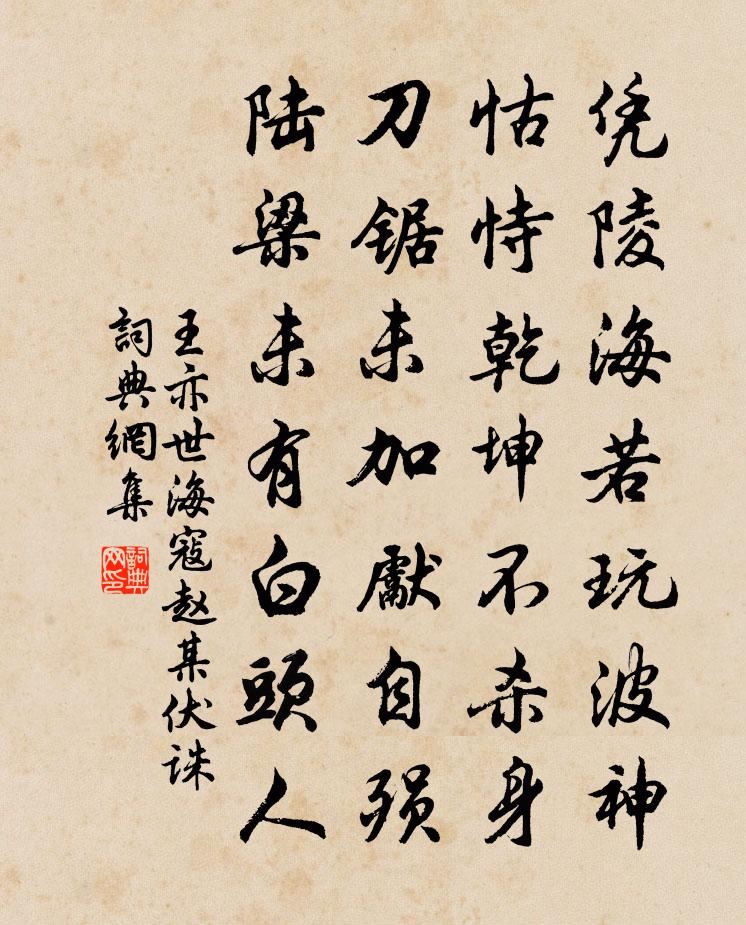 凭陵海若玩波神
怙恃乾坤不杀身
刀锯未加献自殒
陆梁未有白頭人
王亦世海寇赵某伏誅
詞典網集
詞典网印